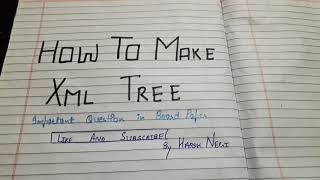 HOW TO MAKE
XML TREE
Important Question in Board Paper
LIKE AND SUBSCRIBE
By HARSH NEGI